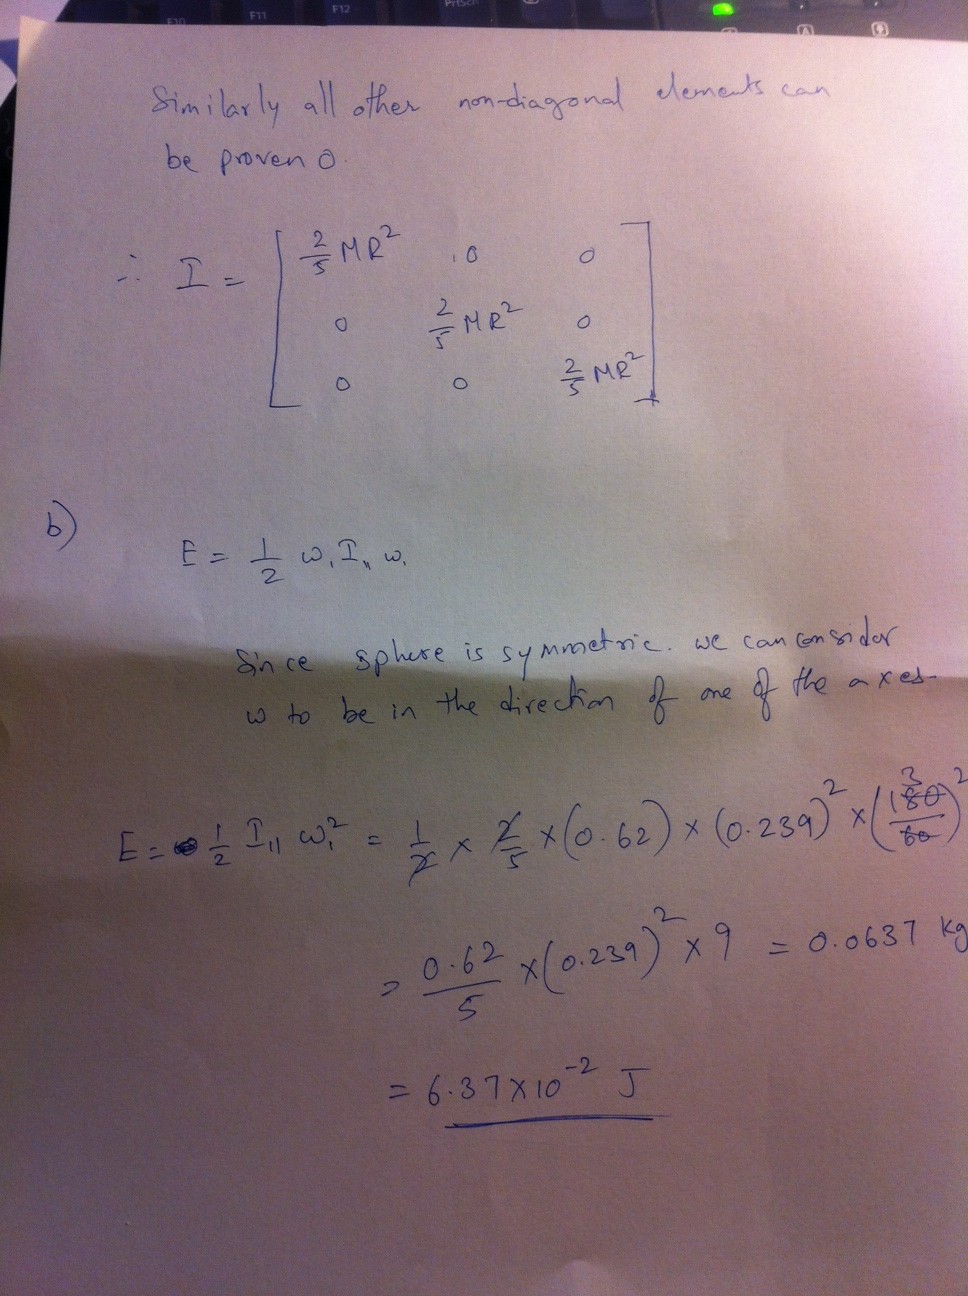 F10 F11 F12 PrtScn
Similarly all other non-diagonal elements can
be proven 0.
∴ I = [ 2/5 MR² 0 0
0 2/5 MR² 0
0 0 2/5 MR² ]
b)
E = 1/2 ω₁ I₁₁ ω₁
Since sphere is symmetric. we can consider
ω to be in the direction of one of the axes.
E = 1/2 I₁₁ ω₁² = 1/2 × 2/5 × (0.62) × (0.239)² × (180/60)²
3
= 0.62/5 × (0.239)² × 9 = 0.0637 kg
= 6.37 × 10⁻² J